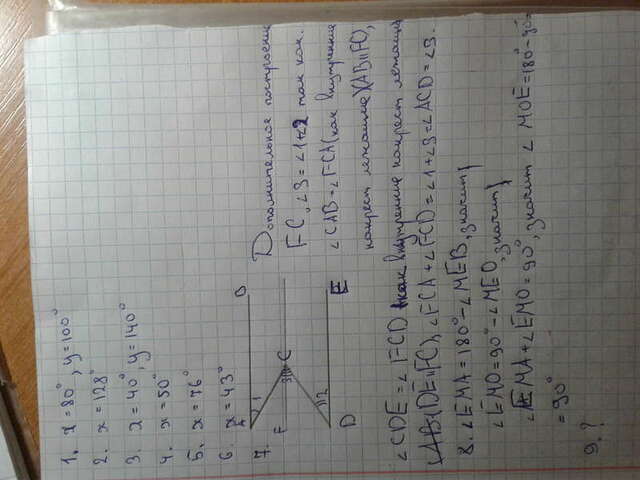 1. x = 80°, y = 100°
2. x = 128°
3. x = 40°, y = 140°
4. x = 50°
5. x = 76°
6. x = 43°
7.
A 1 B
F 3 C
2
D E
Дополнительное построение
FC, ∠3 = ∠1+∠2 так как.
∠CAB = ∠FCA (как внутренние
накрест лежащие) (AB||FC),
∠CDE = ∠FCD (как внутренние накрест лежащие
(DE||FC), ∠FCA + ∠FCD = ∠1 + ∠3 = ∠ACD = ∠3.
8. ∠EMA = 180° - ∠MEB, значит
∠EMO = 90° - ∠MEO, значит
∠EMA + ∠EMO = 90°, значит ∠ MOE = 180° - 90° =
= 90°
9. ?